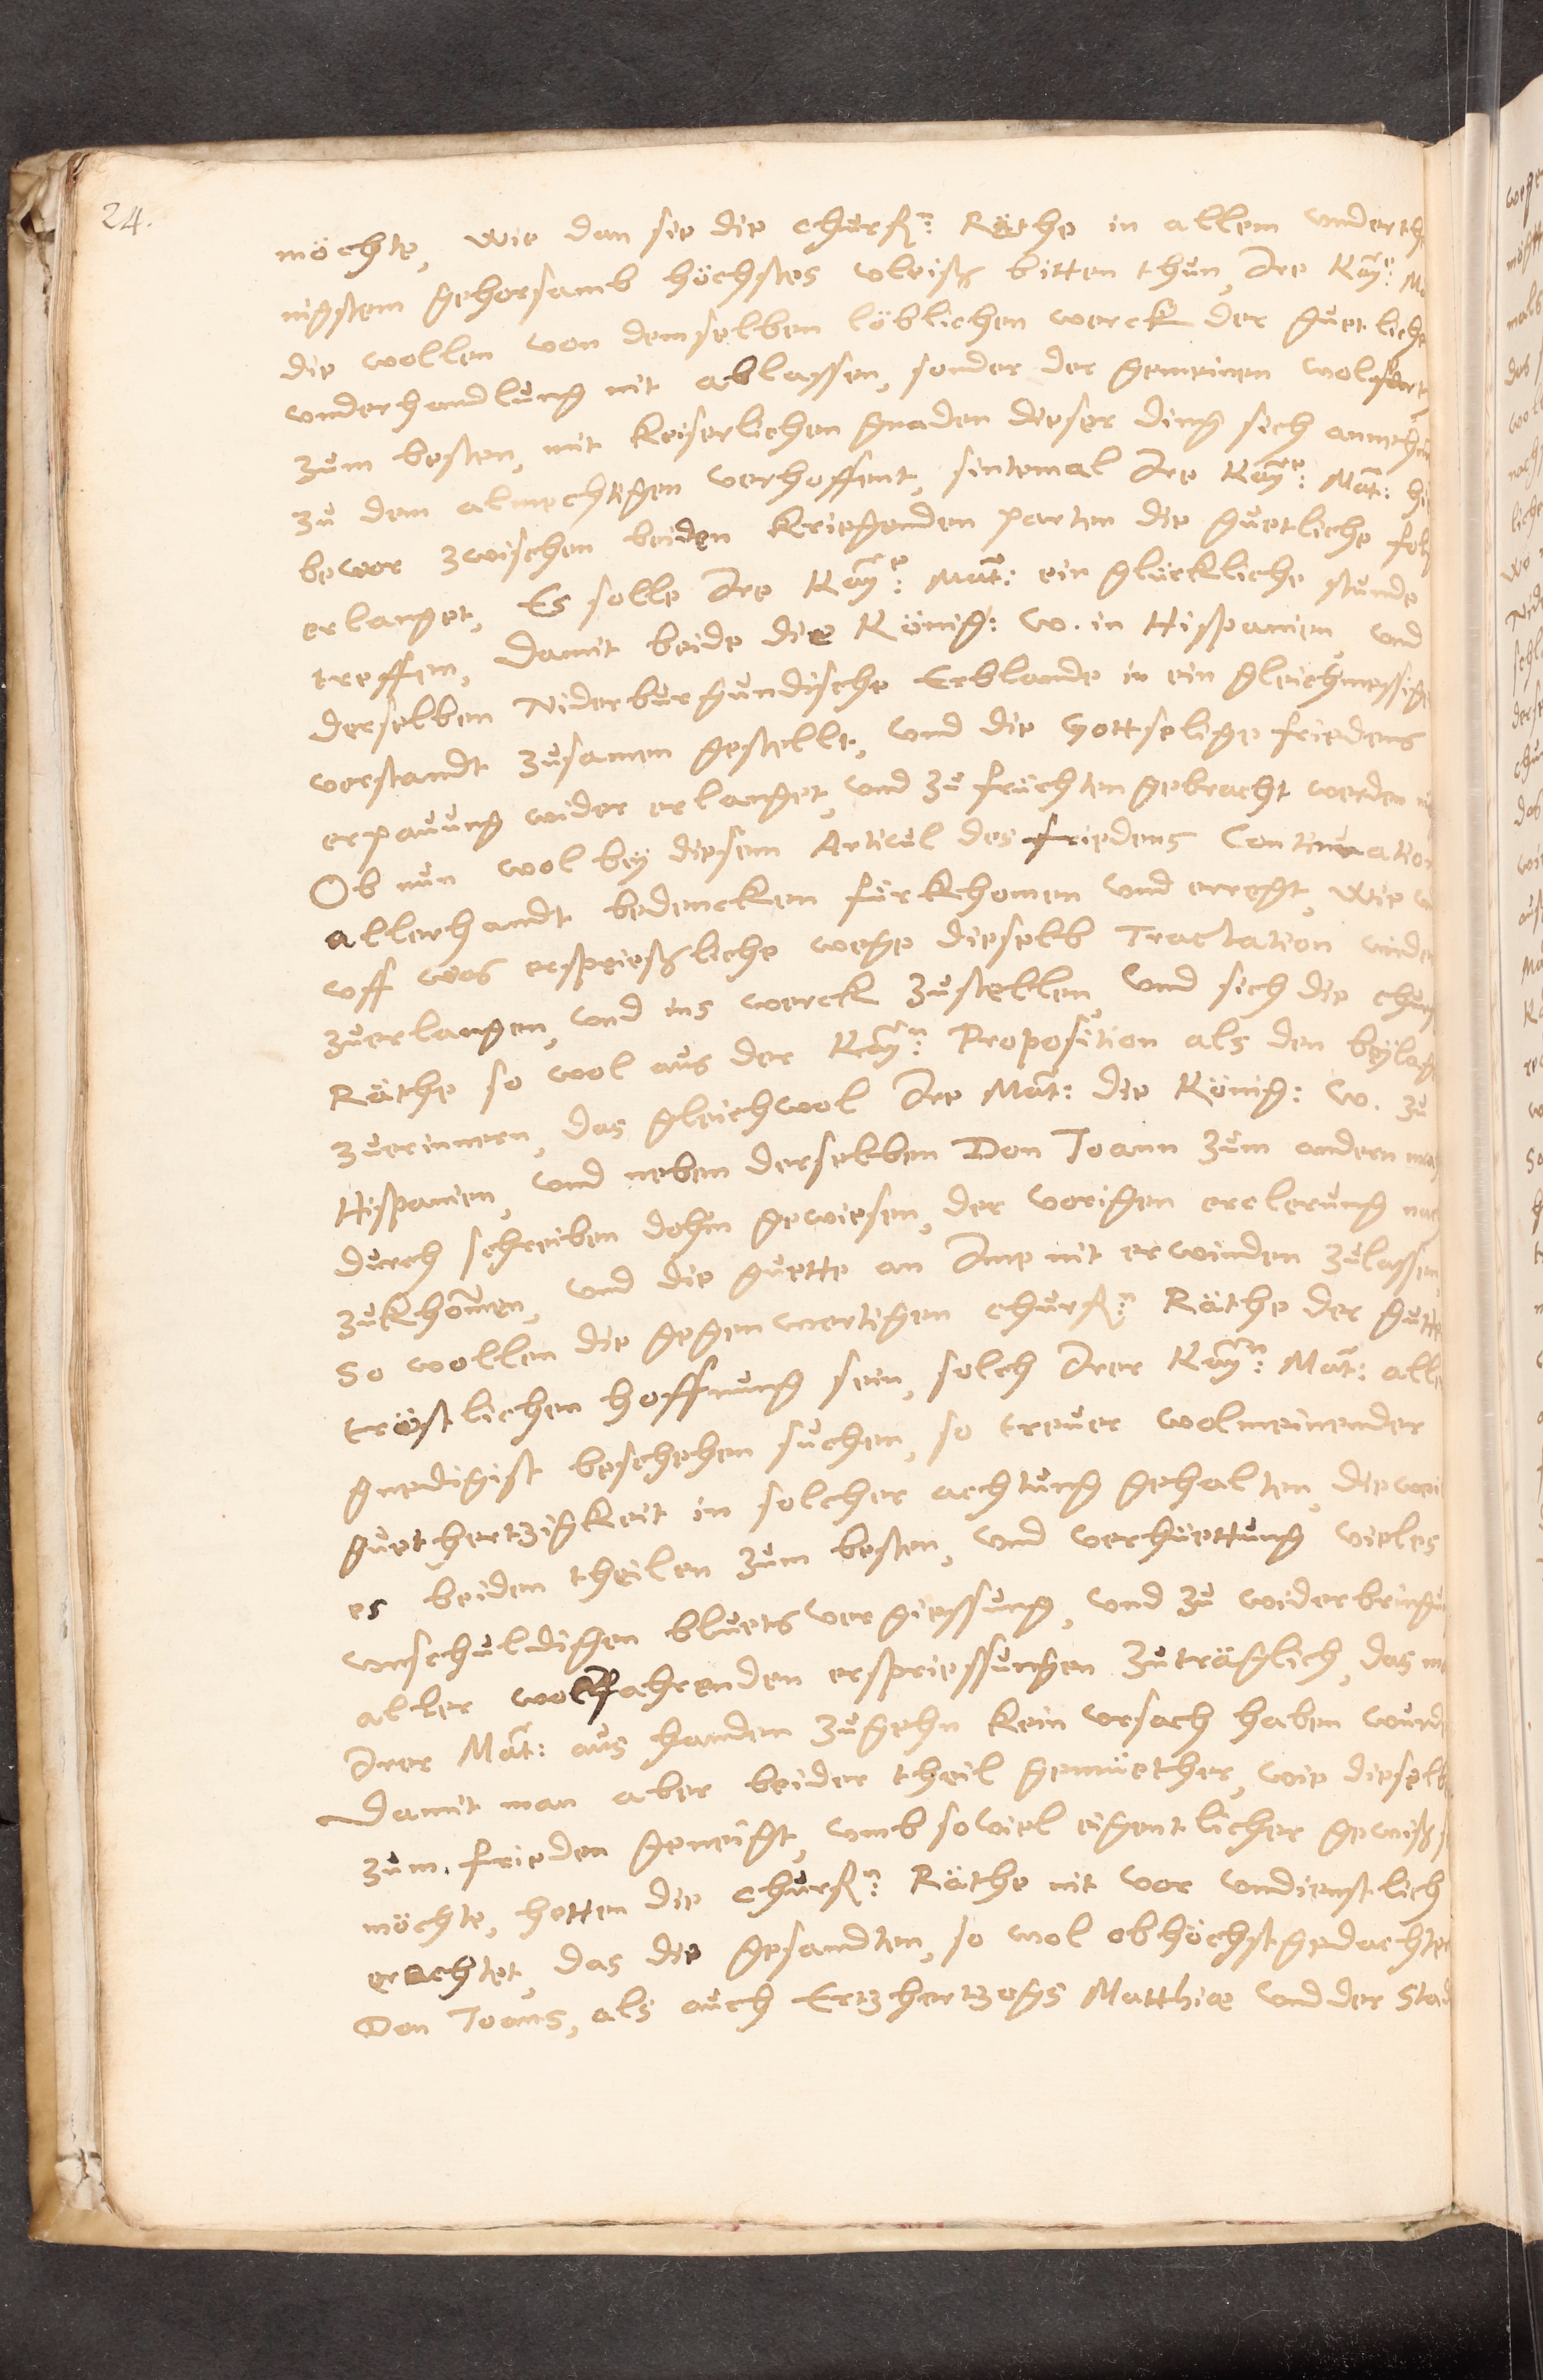 24.
möchte, wie dan sie die churf:n Räthe in allem underthe
nigstem gehorsamb höchstes vleiß bitten thun, Ire Kay:e Ma
die wollen von demselben löblichen werck der guetliche
underhandlung nit ablassen, sonder der gemeinen wolfart
zum besten, mit keiserlichen gnaden dieser ding sich annehm
zu dem almechtigen verhoffent, sintemal Ire Kay:e Mat: hie
bevor zwischen beiden kriegenden parten die guetliche folg
erlanget, Es solle Ire Kay:e Mat: ein glückliche stunde
treffen, damit beide die König: W. in Hispanien, und
derselben Niderburgundische Erblande in ein gleichmessige
verstandt zusamen gestellt, und die gottselige friedens
erpauung wider erlanget, und zu früchten gebracht werden
Ob nun wol bey diesem Articul des friedens Continuation
allerhandt bedencken fürkhomen und erregt, wie
uff was ersprießliche wege dieselb Tractation wider
zuerlangen, und ins werck zustellen, und sich die churf
Räthe so wol aus der Kay:n Proposition als den beylage
zuerinnern, das gleichwol Ire Mat: die König: W. zu
Hispanien, und neben derselben Don Joann zum andern mal
durch schreiben dohin gewiesen, der vorigen erclerung nach
zukhomen, und die guette an Ime nit erwinden zulassen,
So wollen die gegenwertigen churf:n Räthe der gutte
tröstlichen hoffnung sein, solch Irer Kay:n Mat: alle
gnedigist beschehen suchen, so treuer wolmeinender
guethertzigkeit in solcher achtung gehalten, diewei
es beiden theilen zum besten, und verhüettung vieles
unschuldigen bluets vergiessung, und zu widerbringu
aller wolfahrenden erspriessungen zuträglich, das
Irer Mat: aus handen zugehn kein ursach haben wurde
Damit man aber beider theil gemüether, wie dieselb
zum frieden geneigt, umb soviel eigentlicher gewiß
möchte, hetten die churf:n Räthe nit vor undienstlich
erachtet, das die gesandten, so wol obhöchstgedachter
Don Joans, als auch Ertzhertzogs Matthiæ und der Stad